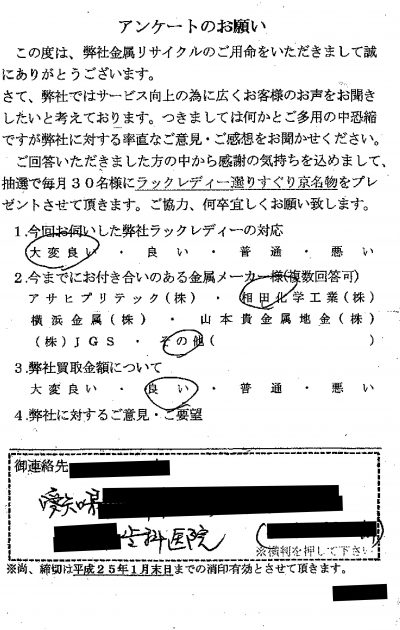 アンケートのお願い
この度は、弊社金属リサイクルのご用命をいただきまして誠
にありがとうございます。
さて、弊社ではサービス向上の為に広くお客様のお声をお聞き
したいと考えております。つきましては何かとご多用の中恐縮
ですが弊社に対する率直なご意見・ご感想をお聞かせください。
ご回答いただきました方の中から感謝の気持ちを込めまして、
抽選で毎月30名様にラックレディー選りすぐり京名物をプレ
ゼントさせて頂きます。ご協力、何卒宜しくお願い致します。
1.今回お伺いした弊社ラックレディーの対応
大変良い ・ 良い ・ 普通 ・ 悪い
2.今までにお付き合いのある金属メーカー様(複数回答可)
アサヒプリテック(株) ・ 相田化学工業(株)
横浜金属(株) ・ 山本貴金属地金(株)
(株)JGS ・ その他( )
3.弊社買取金額について
大変良い ・ 良い ・ 普通 ・ 悪い
4.弊社に対するご意見・ご要望
御連絡先
愛知県
歯科医院
※横判を押して下さい
※尚、締切は平成25年1月末日までの消印有効とさせて頂きます。